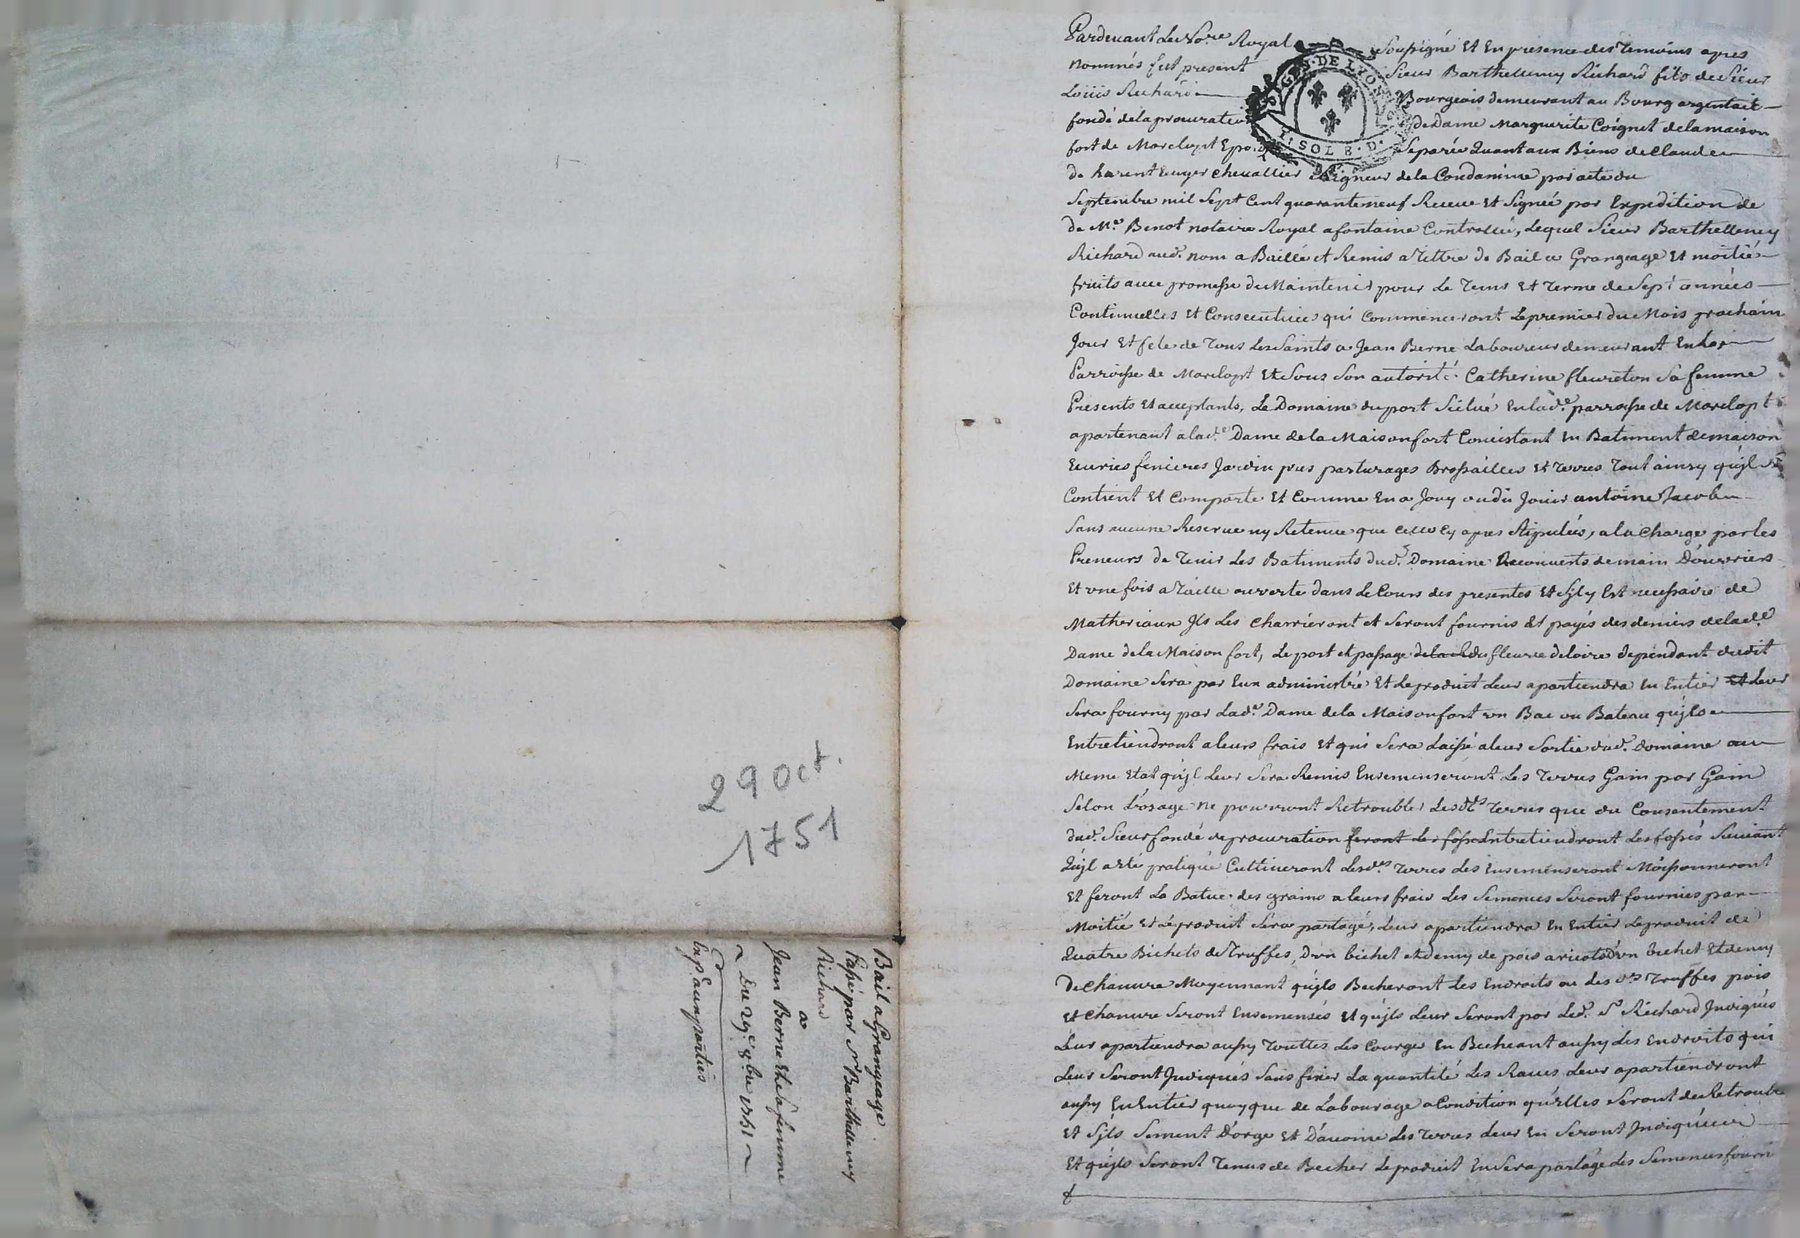 29 Oct.
1751
Bail a Grangeage
Passé par Sr Barthelemy
Richard
a
Jean Berne et sa femme
Du 29e 8bre 1751
Pardevant Le Nore Royal Soussigné Et En presence des Temoins apres
nommés fut present Sieur Barthelemy Richard fils de Sieur
Louis Richard Bourgeois demeurant au Bourg argental
fondé de la procuration de Dame Marguerite Coignet de la maison
fort de Marclopt Epouse Separée Quant aux Biens de Claude
de harent Ecuyer Chevallier Seigneur de la Condamine par acte du
GEN. DE LYON
1. SOL 8. D.
Septembre mil Sept Cent quarante neuf Receue Et Signée par Expedition de
de Me Benot notaire Royal a fontaine Controllée, Lequel Sieur Barthellemy
Richard aud. nom a Baillé et Remis a Tittre de Bail a Grangeage Et moitié
fruits avec promesse de Maintenir pour Le Tems Et Terme de Sept années
Continuelles Et Consecutives qui Commenceront Le premier du Mois prochain
Jour Et fete de Tous Les Saints a Jean Berne Laboureur demeurant En La
Parroisse de Marclopt Et Sous Son autorité Catherine fleureton Sa femme
Presents Et acceptants, Le Domaine du port Scitué En lad.e parroisse de Marclopt
apartenant a lad.e Dame de la Maison fort Consistant En Batiment de maison
Ecuries fenieres Jardin prés pasturages Brossailles Et Terres Tout ainsy qu'jl Se
Contient Et Comporte Et Comme En a Jouy ou dû Jouir antoine Jacob
Sans aucune Reserve ny Retenue que Celle Cy apres Stipulées, a la Charge par les
Preneurs de Tenir Les Batiments dud. Domaine Recouverts de main D'ouvriers
Et une fois a Taille ouverte dans Le Cours des presentes Et S'jl y Est necessaire de
Matheriaux Jls Les Charrieront et Seront fournis Et payés des deniers de lad.e
Dame de la Maison fort, Le port et passage de la du fleuve de Loire dependant dudit
Domaine Sera par Eux administré Et Le produit Leur apartiendra En Entier Et Leur
Sera fourny par Lad.e Dame de la Maison fort un Bac ou Bateau qu'jls
Entretiendront a leurs frais Et qui Sera Laissé a leur Sortie dud. Domaine au
Meme Etat qu'jl Leur Sera Remis Ensemenseront Les Terres Gain par Gain
Selon L'usage ne pourront Retroubler Lesdts Terres que du Consentement
dud. Sieur fondé de procuration feront Les fossés Entretiendront Les fossés Suivant
Qu'jl a été pratiqué Cultiveront Lesd.es Terres Les Ensemenseront Moissonneront
Et feront La Batue des grains a leurs frais Les Semences Seront fournies par
Moitié Et Le produit Sera partagé, Leur apartiendra En Entier Le produit de
Quatre Bichets de Truffes, D'un bichet et demy de pois aricots D'un bichet Et demy
De Chanvre Moyennant qu'jls Becheront Les Endroits ou les d.es Truffes pois
Et Chanvre Seront Ensemensés Et qu'jls Leur Seront par Led. Sr Richard Jndiqués
Leur apartiendra aussy Touttes Les Courges En Becheant aussy Les Endroits qui
Leur Seront Jndiqués Sans fixer La quantité Les Raves Leur apartiendront
aussy En Entier quoyque de Labourage a Condition qu'elles Seront de Retrouble
Et S'jls Sement D'orge Et D'avoine Les Terres Leur En Seront Jndiquées
Et qu'jls Seront Tenus de Becher Le produit En Sera partagé Les Semences fourni